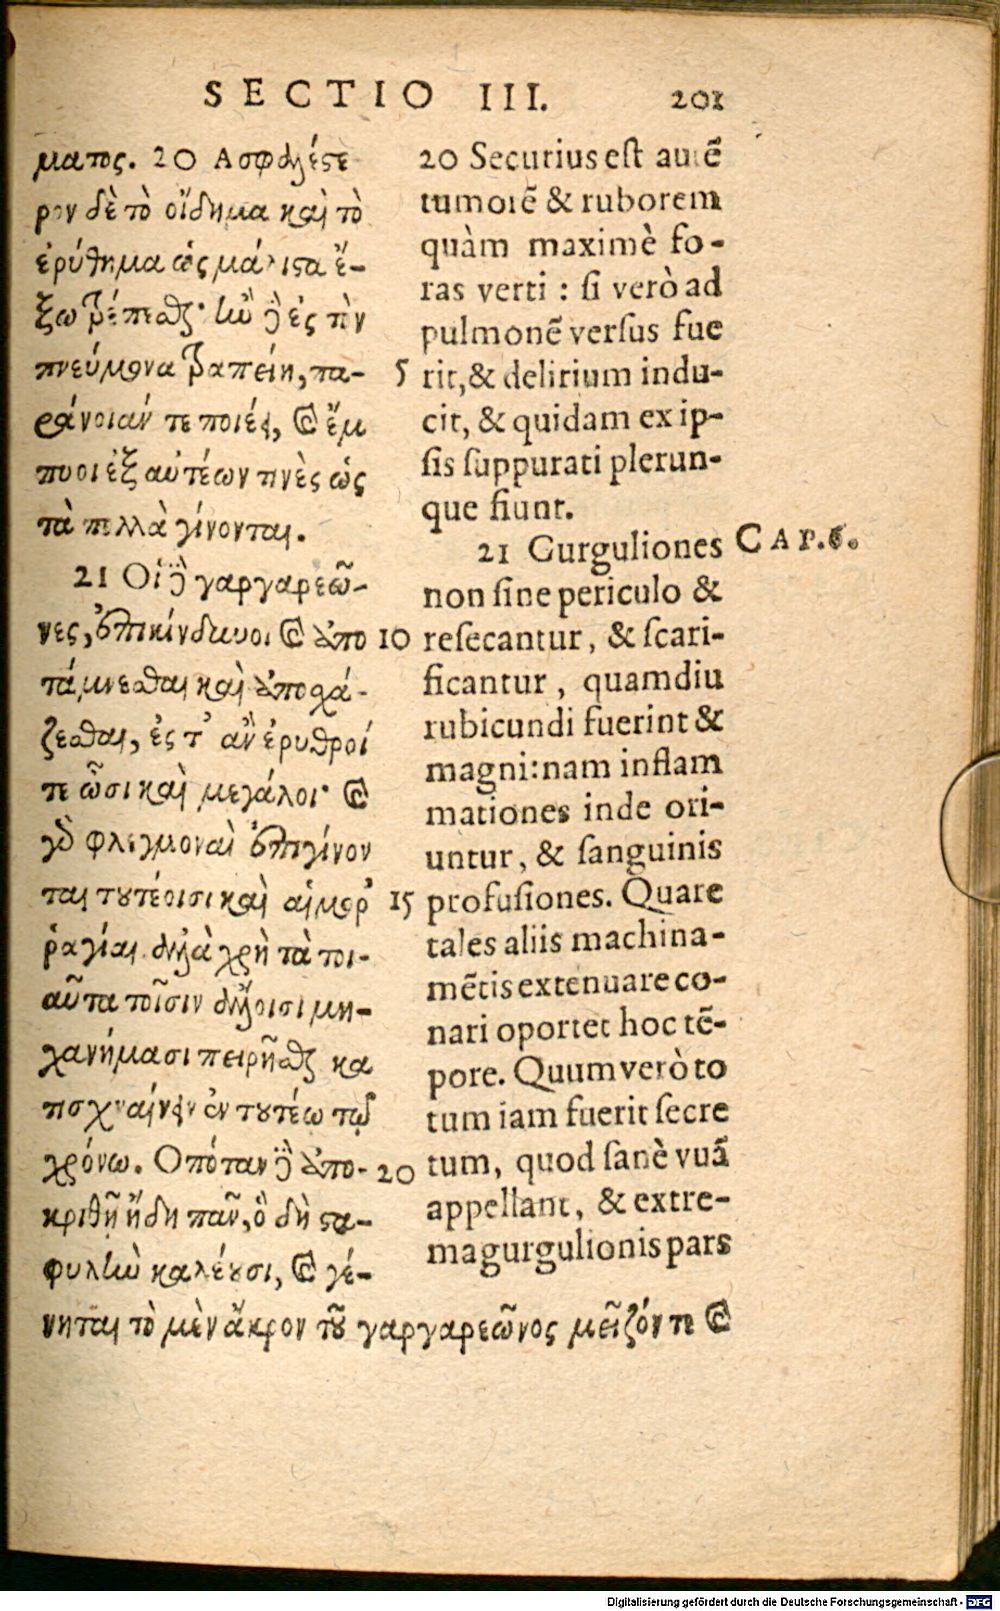 SECTIO III. 201
ματος. 20 Ασφαλέστε
ρον δὲ τὸ οἴδημα καὶ τὸ
ἐρύθημα ὡς μάλιστα ἔ-
ξω τρέπεσθαι· ἢν δὲ ἐς τὸν
πνεύμονα τραπείη, πα-
ράνοιάν τε ποιέει, καὶ ἔμ
πυοι ἐξ αὐτέων τινὲς ὡς
τὰ πολλὰ γίνονται.
21 Οἱ δὲ γαργαρεῶ-
νες, ἐπικίνδυνοι καὶ ἀπο
τάμνεσθαι καὶ ἀποσχά-
ζεσθαι, ἐς τ' ἂν ἐρυθροί
τε ὦσι καὶ μεγάλοι· καὶ
γὰρ φλεγμοναὶ ἐπιγίνον
ται τουτέοισι καὶ αἱμορ
ῥαγίαι. ἀλλὰ χρὴ τὰ τοι-
αῦτα τοῖσιν ἄλλοισι μη-
χανήμασι πειρῆσθαι κα
τισχναίνειν ἐν τουτέῳ τῷ
χρόνῳ. Οπόταν δὲ ἀπο-
κριθῇ ἤδη πᾶν, ὃ δὴ στα-
φυλὴν καλέουσι, καὶ γέ-
νηται τὸ μὲν ἄκρον τοῦ γαργαρεῶνος μεῖζόν τε καὶ
5
10
15
20
20 Securius est autẽ
tumorẽ & ruborem
quàm maximè fo-
ras verti : si verò ad
pulmonẽ versus fue
rit, & delirium indu-
cit, & quidam ex ip-
sis suppurati plerun-
que fiunt.
21 Gurguliones
non sine periculo &
resecantur, & scari-
ficantur, quamdiu
rubicundi fuerint &
magni: nam inflam
mationes inde ori-
untur, & sanguinis
profusiones. Quare
tales aliis machina-
mẽtis extenuare co-
nari oportet hoc tẽ-
pore. Quum verò to
tum iam fuerit secre
tum, quod sanè vuã
appellant, & extre-
ma gurgulionis pars
CAP. 6.
Digitalisierung gefördert durch die Deutsche Forschungsgemeinschaft - DFG